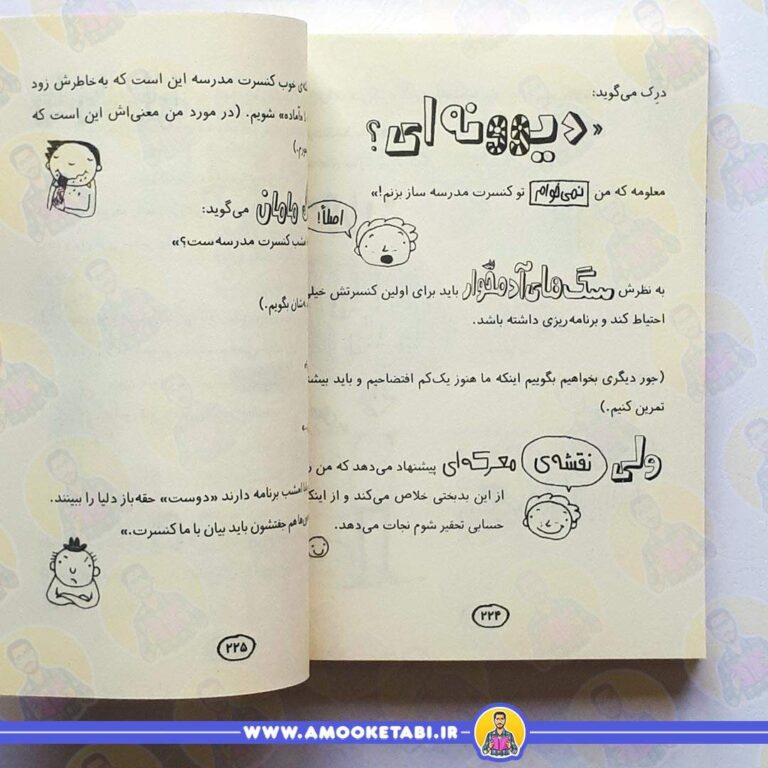 درک می‌گوید:
«دیوونه‌ای؟
معلومه که من نمی‌خوام تو کنسرت مدرسه ساز بزنم!»
اصلاً!
به نظرش سگ‌های آدمخوار باید برای اولین کنسرتش خیلی
احتیاط کند و برنامه‌ریزی داشته باشد.
(جور دیگری بخواهیم بگوییم اینکه ما هنوز یک‌کم افتضاحیم و باید بیشتر
تمرین کنیم.)
ولی نقشه‌ی معرکه‌ای پیشنهاد می‌دهد که من
از این بدبختی خلاص می‌کند و از اینکه
حسابی تحقیر شوم نجات می‌دهد.
۲۲۴
خوب کنسرت مدرسه این است که به‌خاطرش زود
آماده» شویم. (در مورد من معنی‌اش این است که
مامان می‌گوید:
کنسرت مدرسه‌ست؟»
بگویم.)
امشب برنامه دارند «دوست» حقه‌باز دلیا را ببینند.
هم جفتشون باید بیان با ما کنسرت.»
۲۲۵
WWW.AMOOKETABI.IR